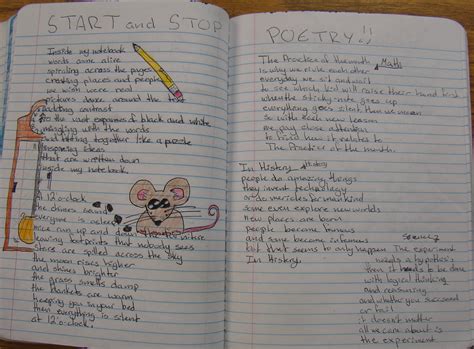 START and STOP
POETRY!!
Inside my notebook
words come alive
spiraling across the pages
creating places and people
we wish were real
pictures dance around the text
adding contrast
to the vast expanses of black and white
mingling with the words
and fitting together like a puzzle
inspiring ideas
that are written down
inside my notebook.
At 12 o'clock
as chimes sound
everyone is
mice run up and
leaving footprints that nobody sees
stars are spilled across the sky
the moon rises higher
and shines brighter
the grass smells damp
the blankets are warm
keeping you in your bed
then everything is silent
at 12 o'clock.
The Practice of the math
Math
is why we rival each other
everyday we sit and wait
to see which kid will raise their hand first
when the sticky note goes up
everything goes silent
so with each new lesson
we pay close attention
to how it relates to
The Practice of the month.
In History
History
people do amazing things
they invent technology
or do miracles for mankind
some even explore new worlds
new places are born
people become famous
and some become infamous
but that seems to only happen
In History.
Science
The experiment
needs a hypothesis
then it needs to be done
with logical thinking
and reasoning
and whether you succeed
or fail
it doesn't matter
all we care about is
the experiment